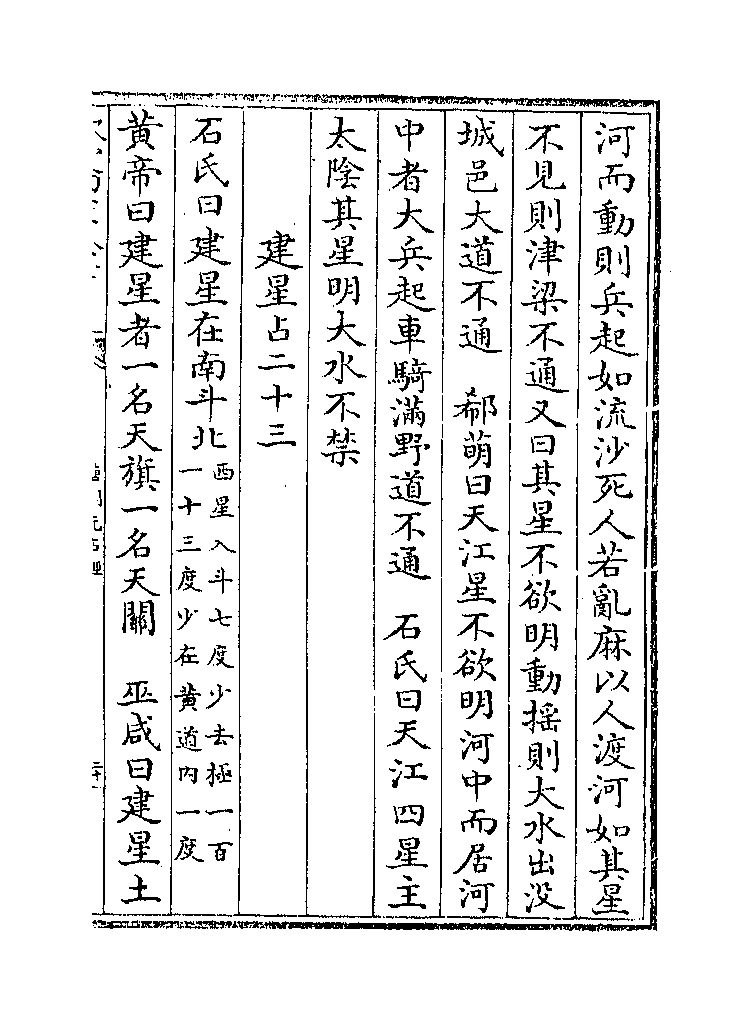 河而動則兵起如流沙死人若亂麻以人渡河如其星
不見則津梁不通又曰其星不欲明動揺則大水出没
城邑大道不通　郗萌曰天江星不欲明河中而居河
中者大兵起車騎滿野道不通　石氏曰天江四星主
太陰其星明大水不禁
建星占二十三
石氏曰建星在南斗北西星入斗七度少去極一百一十三度少在黄道内一度
黄帝曰建星者一名天旗一名天關　巫咸曰建星土